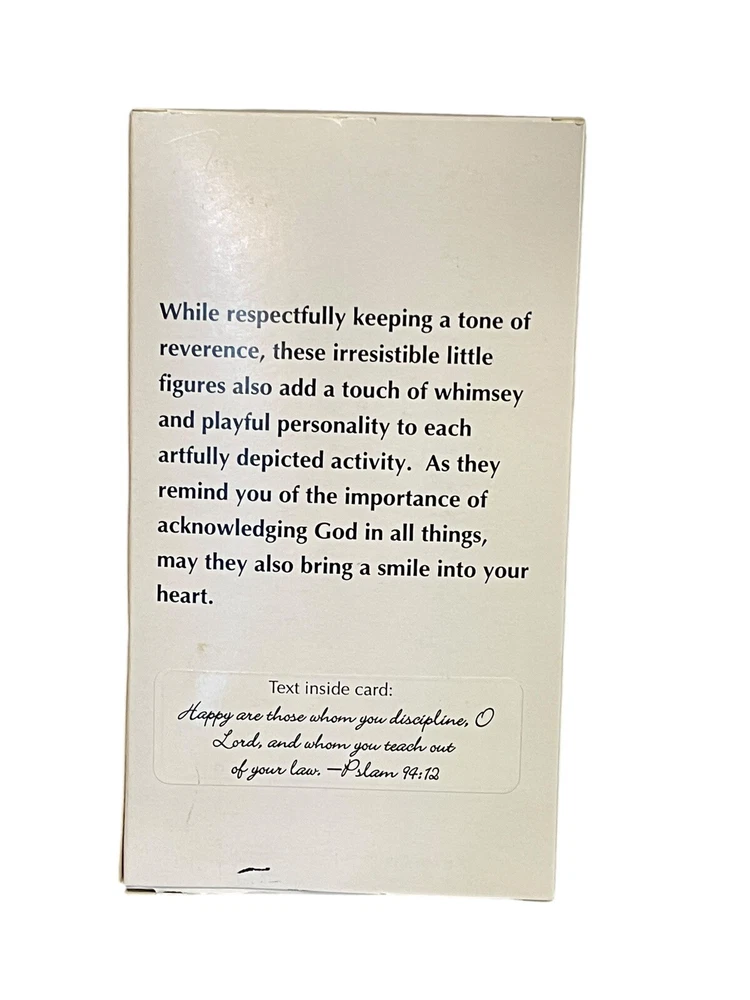 While respectfully keeping a tone of
reverence, these irresistible little
figures also add a touch of whimsey
and playful personality to each
artfully depicted activity.  As they
remind you of the importance of
acknowledging God in all things,
may they also bring a smile into your
heart.
Text inside card:
Happy are those whom you discipline, O
Lord, and whom you teach out
of your law. —Pslam 94:12